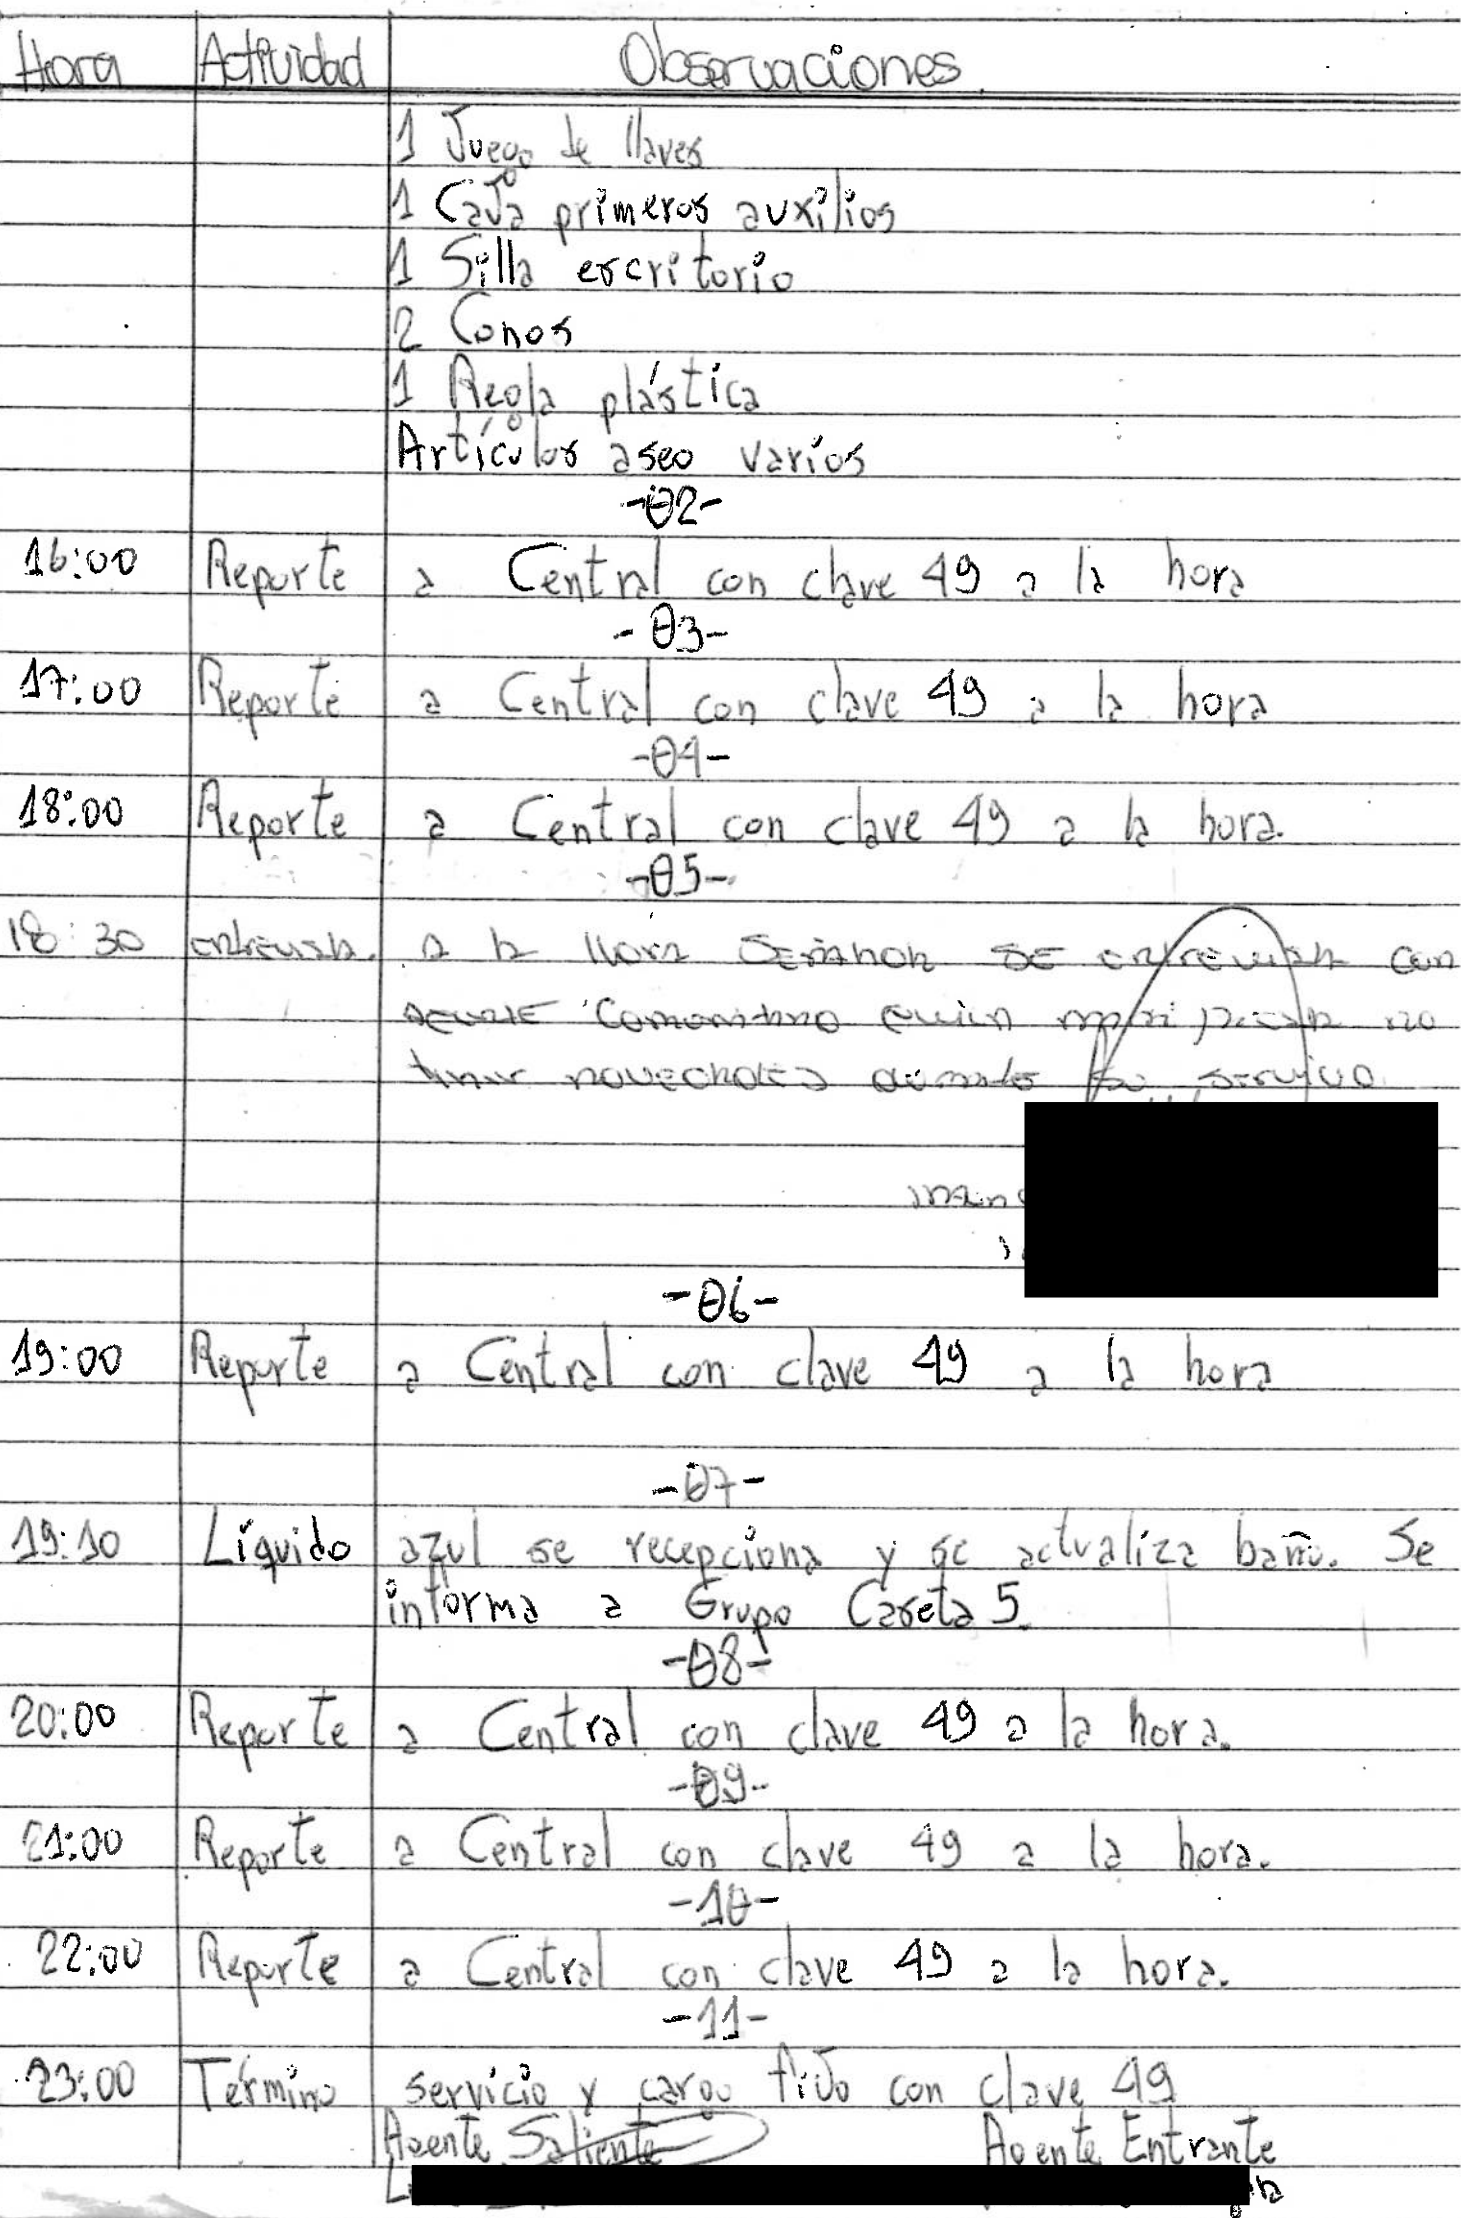 Hora Actividad Observaciones
1 Juego de llaves
1 Caja primeros auxilios
1 Silla escritorio
2 Conos
1 Regla plástica
Artículos aseo varios
-02-
16:00 Reporte a Central con clave 49 a la hora
-03-
17:00 Reporte a Central con clave 49 a la hora
-04-
18:00 Reporte a Central con clave 49 a la hora.
-05-
18:30 entrevista. a la hora Señalada se entrevista con
agente Comunitario quien no
tener novedades durante su servicio
-06-
19:00 Reporte a Central con clave 49 a la hora
-07-
19:10 Líquido azul se recepciona y se actualiza baño. Se
informa a Grupo Caseta 5.
-08-
20:00 Reporte a Central con clave 49 a la hora.
-09-
21:00 Reporte a Central con clave 49 a la hora.
-10-
22:00 Reporte a Central con clave 49 a la hora.
-11-
23:00 Término servicio y cargo fijo con clave 49
Agente Saliente Agente Entrante